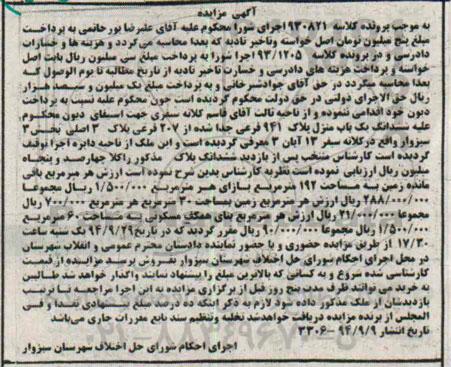 آگهی مزایده
به موجب پرونده کلاسه ۹۳۰۸۲۱ اجرای شورا محکوم علیه آقای علیرضا پور حاتمی به پرداخت
مبلغ پنج میلیون تومان اصل خواسته وتاخیر تادیه که بعدا محاسبه می گردد و هزینه ها و خسارات
دادرسی و در پرونده کلاسه ۹۳/۱۲۰۵ اجرا شورا به پرداخت مبلغ سی میلیون ریال بابت اصل
خواسته و پرداخت هزینه های دادرسی و خسارت تاخیر تادیه از تاریخ مطالبه تا یوم الوصول که
بعدا محاسبه میگردد در حق آقای جوادشیرخانی و به پرداخت مبلغ یک میلیون و سیصد هزار
ریال حق الاجرای دولتی در حق دولت محکوم گردیده است چون محکوم علیه نسبت به پرداخت
دیون خود اقدامی ننموده و از ناحیه ثالث آقای قاسم کلاته سفری جهت استیفای دیون محکوم
علیه ششدانگ یک باب منزل پلاک ۹۴۱ فرعی جدا شده از ۲۰۷ فرعی پلاک ۳ اصلی بخش ۳
سبزوار واقع در کلاته سفر ۱۳ آبان ۳ معرفی گردیده است و این ملک از ناحیه دایره اجرا توقیف
گردیده است کارشناس منتخب پس از بازدید ششدانگ پلاک مذکور راکلا چهارصد و پنجاه
میلیون ریال ارزیابی نموده است نظریه کارشناس بدین شرح نموده است ارزش هر مترمربع باقی
مانده زمین به مساحت ۱۹۲ مترمربع بازای هر مترمربع ۱/۵۰۰/۰۰۰ ریال مجموعا
۲۸۸/۰۰۰/۰۰۰ ریال ارزش هر مترمربع زمین بمساحت ۳۰ مترمربع هر مترمربع ۷۰۰/۰۰۰ ریال
مجموعا ۲۱/۰۰۰/۰۰۰ ریال ارزش هر مترمربع بنای همکف مسکونی به مساحت ۶۰ مترمربع
۱/۵۰۰/۰۰۰ ریال مجموعا ۹۰/۰۰۰/۰۰۰ ریال مقرر گردید که در تاریخ ۹۴/۹/۲۹ یک شنبه ساعت
۱۷/۳۰ از طریق مزایده حضوری و با حضور نماینده دادستان محترم عمومی و انقلاب شهرستان
در محل اجرای احکام شورای حل اختلاف شهرستان سبزوار بفروش برسد مزایده از قیمت
کارشناسی شده شروع و به کسانی که بالاترین مبلغ را پیشنهاد نمایند واگذار خواهد شد طالبین
به خرید می توانند ظرف مدت پنج روز قبل از برگزاری مزایده به این اجرا مراجعه تا ترتیب
بازدیدشان از ملک مذکور داده شود لازم به ذکر اینکه ده درصد مبلغ پیشنهادی نقدا و فی
المجلس از برنده مزایده دریافت خواهدشد تخلیه وتنظیم سند تابع مقررات جاری می باشد
تاریخ انتشار ۹۴/۹/۹ -۳۳۰۶
اجرای احکام شورای حل اختلاف شهرستان سبزوار